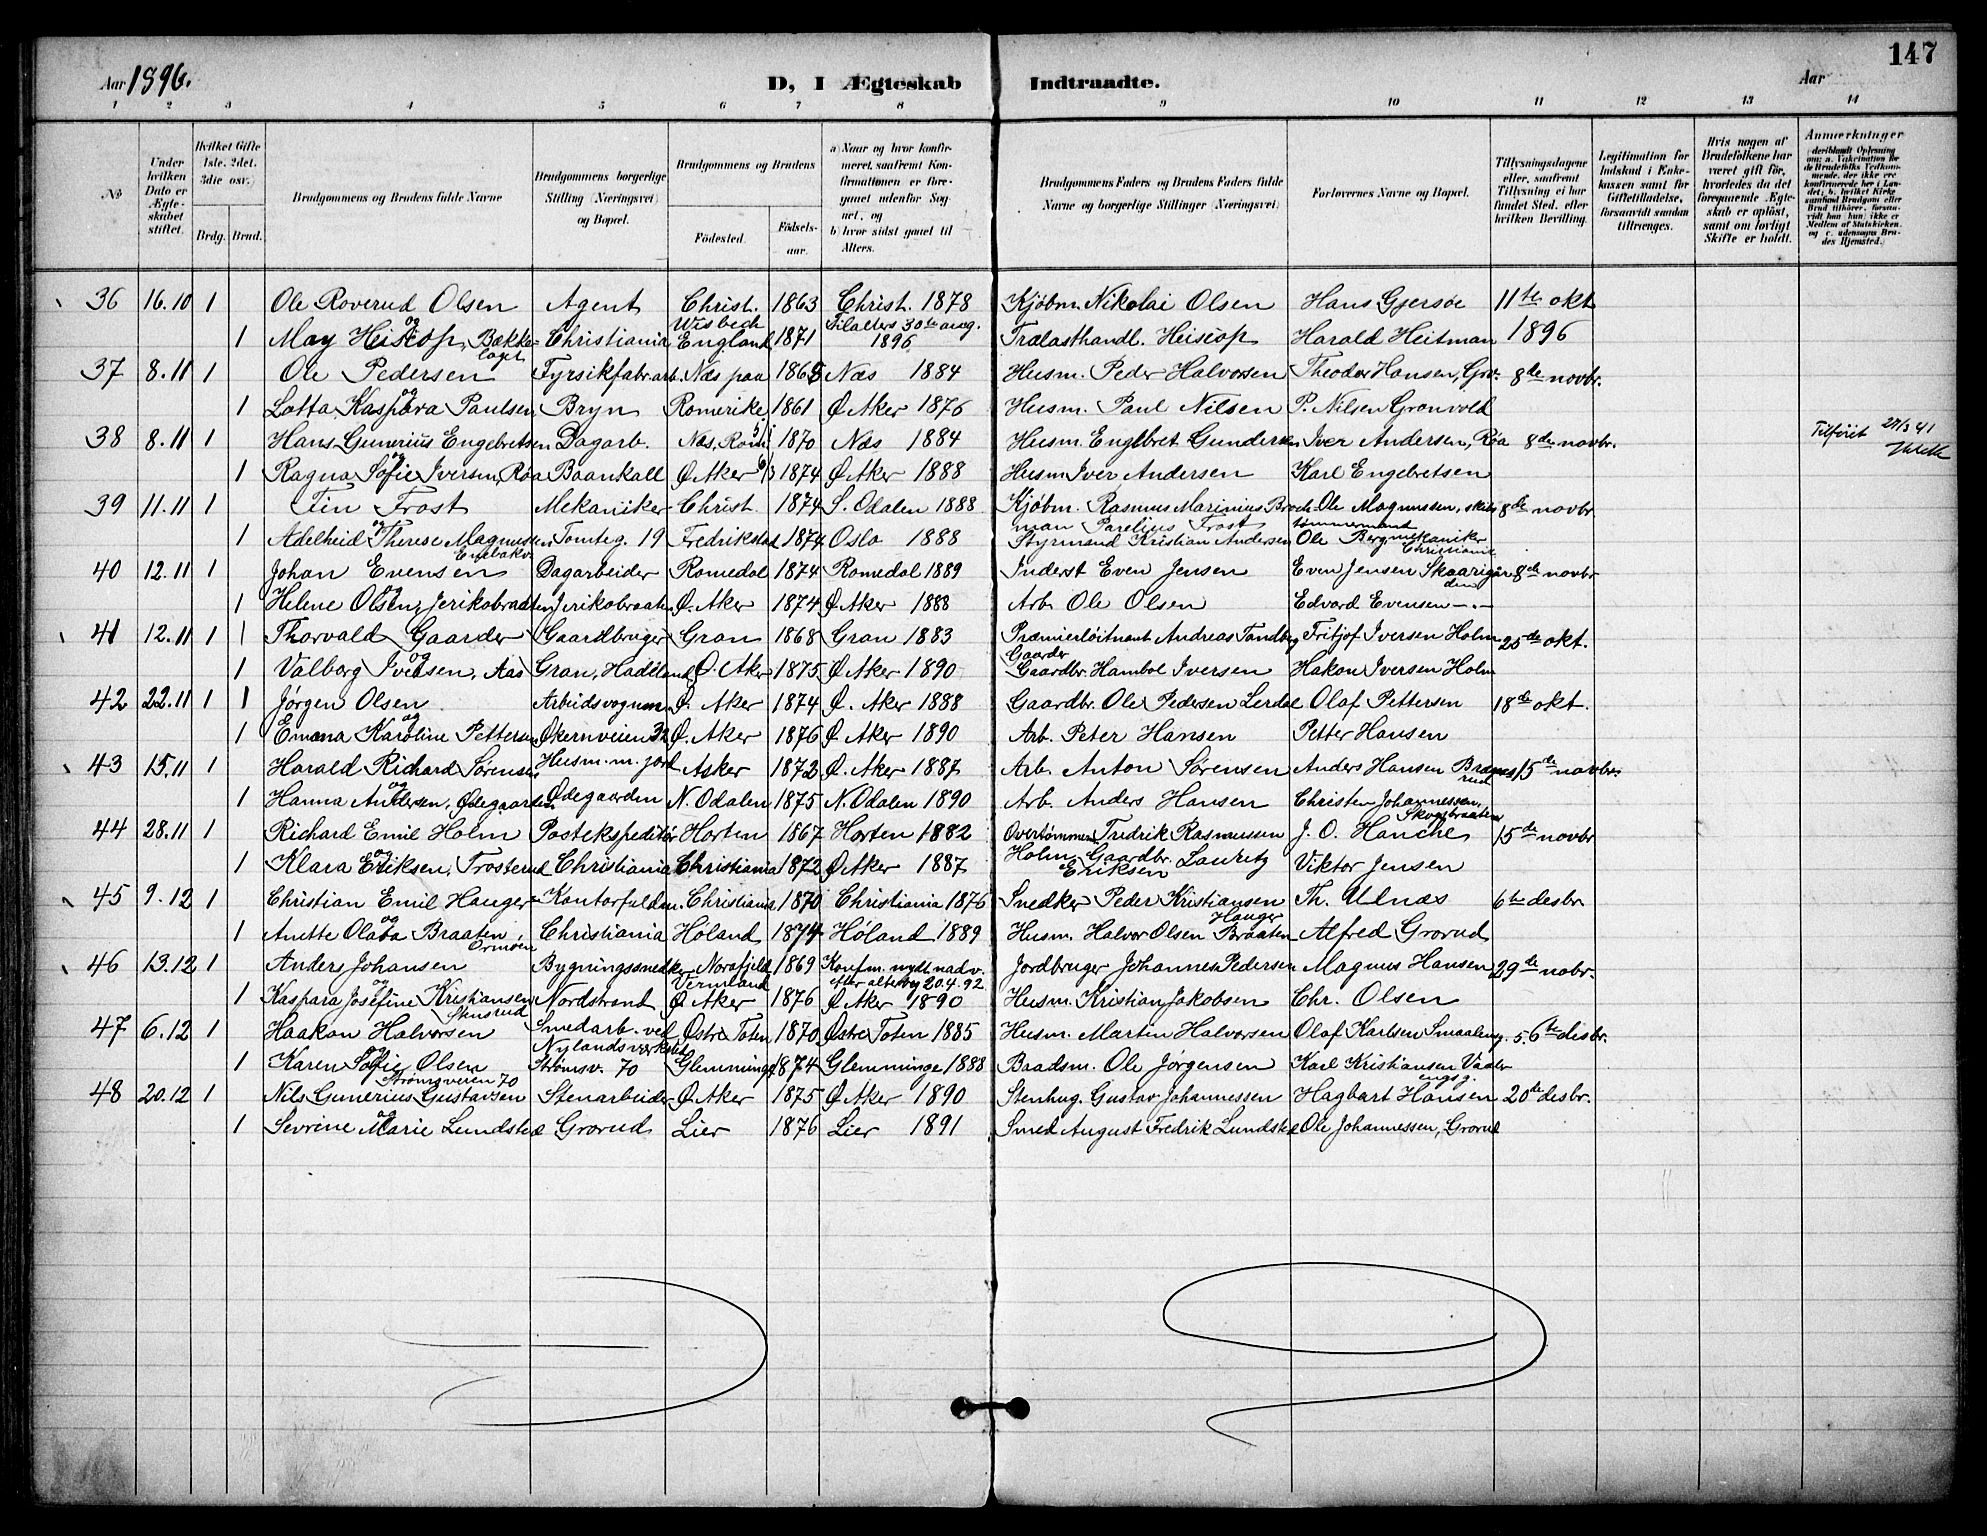 147
Aar 1896. D, I Ægteskab Indtraadte. Aar
1 2 3 4 5 6 7 8 9 10 11 12 13 14
No
Under hvilken Dato er Ægteskabet stiftet.
Hvilket Gifte 1ste, 2det, 3die osv.)
Brdg. Brud.
Brudgommens og Brudens fulde Navne
Brudgommens borgerlige Stilling (Næringsvei) og Bopæl.
Brudgommens og Brudens
Fødested. Fødsels-aar.
a) Naar og hvor konfirmeret, saafremt Konfirmationen er foregaaet udenfor Sognet, og
b) hvor sidst gaaet til Alters.
Brudgommens Faders og Brudens Faders fulde Navne og borgerlige Stillinger (Næringsvei)
Forlovernes Navne og Bopæl.
Tillysningsdagene eller, saafremt Tillysning ei har fundet Sted, efter hvilken Bevilling.
Legitimation for Indskud i Enkekassen samt for Giftetilladelse, forsaavidt saadan tiltrænges.
Hvis nogen af Brudefolkene har været gift før, hvorledes da det foregaaende Ægteskab er opløst, samt om lovligt Skifte er holdt.
Anmærkninger
36 16.10 1 Ole Roverud Olsen Agent Christ. 1863 Christ. 1878 Kjøbm. Nikolai Olsen Hans Gjersøe 11te okt
og
1 May Heiscop, Bækkelaget Christiania Wisbech England 1871 Tilalters 30te aug. 1896 Trælasthandl. Heiscop Harald Heitman 1896
37 8.11 1 Ole Pedersen Fyrstikfabr.arb. Næs paa 1868 Næs 1884 Husm. Peder Halvorsen Theodor Hansen, 8de novbr.
og
1 Lotta Kaspara Paulsen Bryn Romerike 1861 Ø Aker 1876 Husm. Paul Nilsen P. Nilsen Grønvold
38 8.11 1 Hans Gunerius Engebretsen Dagarb. Næs, Rom. 1870 Næs 1884 Husm. Englbret Gundersen Iver Andersen, Røa 8de novbr. Tilføiet 27/3 41
og
1 Ragna Sofie Iversen, Røa Baankall Ø Aker 1874 Ø Aker 1888 Husm Iver Andersen Karl Engebretsen
39 11.11 1 Tin Frost Mekaniker Christ. 1874 S. Odalen 1888 Kjøbm. Rasmus Marinius Brochman Parelius Frost Ole Magnussen, skibstømmermand 8de novbr
og
1 Adelheid Therese Magnussen Enebakv. Tomteg. 19 Fredrikstad 1874 Oslo 1888 Styrmand Kristian Andersen Ole Berg mekaniker Christiania
40 12.11 1 Johan Evensen Dagarbeider Romedal 1874 Romedal 1889 Inderst Even Jensen Even Jensen 8de novbr
og
1 Helene Olsen, Jerikobraaten Jerikobraaten Ø. Aker 1874 Ø Aker 1888 Arb. Ole Olsen Edvard Evensen —.—
41 12.11 1 Thorvald Gaarder Gaardbruger Gran 1868 Gran 1883 Premierløitnant Andreas Tandberg Gaarder Fritjof Iversen Holm 25de okt.
og
1 Valborg Iversen, Aas Gran, Hadeland Ø. Aker 1875 Ø Aker 1890 Gaardbr. Hambol Iversen Hakon Iversen Holm
42 22.11 1 1 Jørgen Olsen Arbeidsvognm. Ø. Aker 1874 Ø. Aker 1888 Gaardbr. Ole Pedersen Lerdal Olaf Pettersen 18de okt.
og
1 Emma Karoline Pettersen Økernveien 32 Ø. Aker 1876 Ø Aker 1890 Arb. Peter Hansen Petter Hansen
43 15.11 1 Harald Richard Sørensen Husm. m. jord Asker 1872 Ø. Aker 1887 Arb. Anton Sørensen Anders Hansen 15de novbr.
og
1 Hanna Andersen, Ødegaarden Ødegaarden N. Odalen 1875 N. Odalen 1890 Arb. Anders Hansen Christen Johannessen, Skogbraaten
44 28.11 1 Richard Emil Holm Postekspeditør Horten 1867 Horten 1882 Overtømmerm. Fredrik Rasmussen Holm J. O. Hanche 15de novbr
og
1 Klara Eriksen, Trosterud Christiania Christiania 1872 Ø Aker 1887 Gaardbr. Lauritz Eriksen Viktor Jensen
45 9.12 1 Christian Emil Hauger Kontorfuldm. Christiania 1870 Christiania 1876 Snedker Peder Kristiansen Hauger Th. Ulnæs 6te desbr
og
1 Anette Olava Braaten, Ormøen Christiania Høland 1874 Høland 1889 Husm. Halvor Olsen Braaten Alfred Grorud
46 13.12 1 Anders Johansen Bygningssnedker Norafjeld Vermland 1869 Konfm. nydt nadv. 20.4.92 Jordbruger Johannes Pedersen Magnus Hansen 29de nobr.
og
1 Kaspara Josefine Kristiansen Stensrud Nordstrand Ø Aker 1876 Ø Aker 1890 Husm. Kristian Jakobsen Chr. Olsen
47 6.12 1 Haakon Halvorsen Smedarb. ved Nylandsværksted Østre Toten 1870 Østre Toten 1885 Husm. Martin Halvorsen Olaf Karlsen Smaaleng. 5. 6te desbr.
og
1 Karen Sofie Olsen Strømsveien 70 Strømsv. 70 Glemminge 1874 Glemminge 1888 Baadsm. Ole Jørgensen Karl Kristiansen
48 20.12 1 Nils Gunerius Gustavsen Stenarbeider Ø Aker 1875 Ø Aker 1890 Stenhug. Gustav Johannessen Hagbart Hansen 20de desbr.
og
1 Sevrine Marie Lundsted Grorud Lier 1876 Lier 1891 Smed August Fredrik Lundsted Ole Johannessen, Grorud